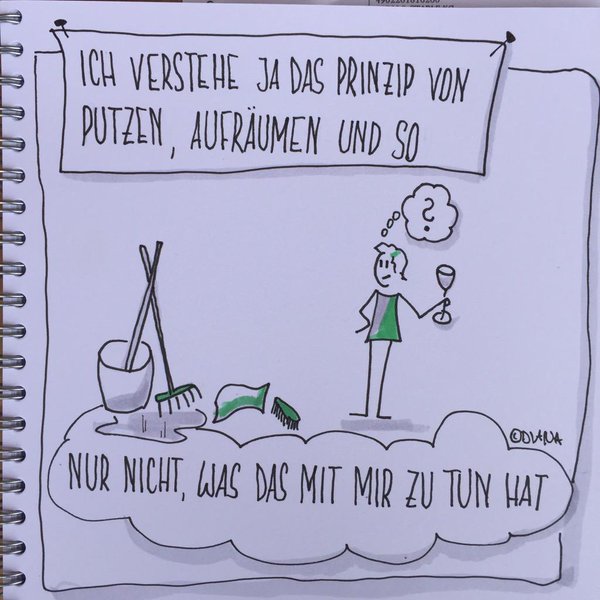 ICH VERSTEHE JA DAS PRINZIP VON
PUTZEN, AUFRÄUMEN UND SO
?
©DIANA
NUR NICHT, WAS DAS MIT MIR ZU TUN HAT